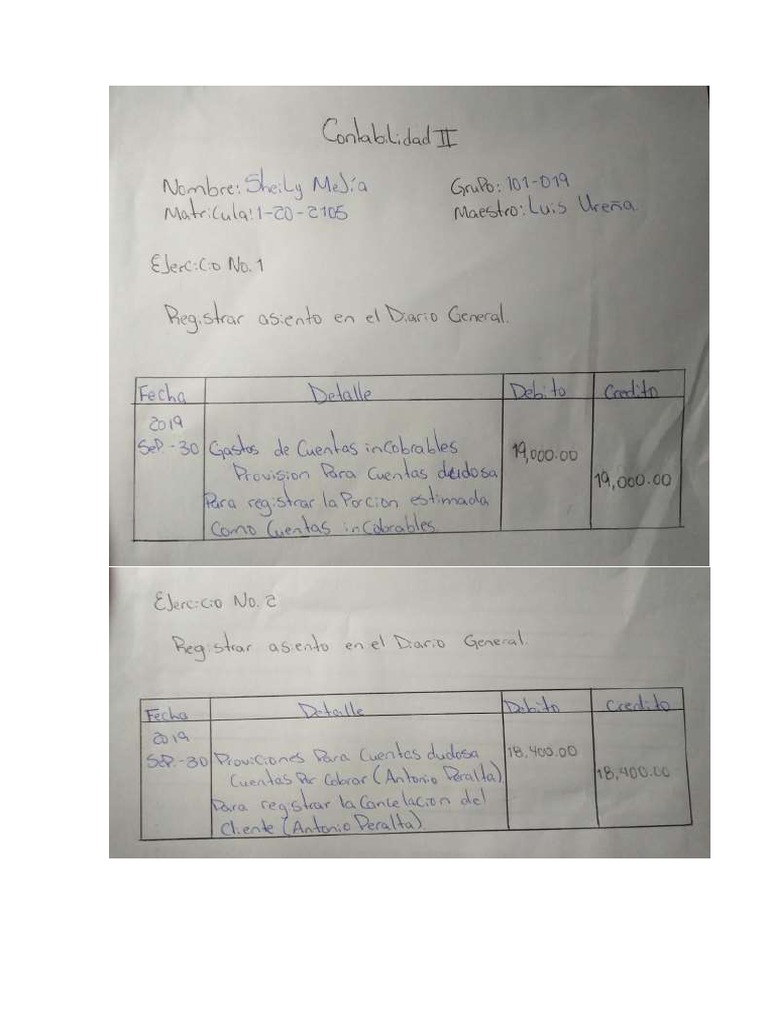 Contabilidad II
Nombre: Sheily Mejía Grupo: 101-019
Matricula: 1-20-2105 Maestro: Luis Ureña
Ejercicio No. 1
Registrar asiento en el Diario General.
Fecha Detalle Debito Credito
2019
Sep - 30 Gastos de Cuentas incobrables 19,000.00
Provision Para Cuentas deudosa 19,000.00
Para registrar la Porcion estimada
Como Cuentas incobrables.
Ejercicio No. 2
Registrar asiento en el Diario General.
Fecha Detalle Debito Credito
2019
Sep. - 30 Proviciones Para Cuentas dudosa 18,400.00
Cuentas Por Cobrar (Antonio Peralta) 18,400.00
Para registrar la Cancelacion del
Cliente (Antonio Peralta).